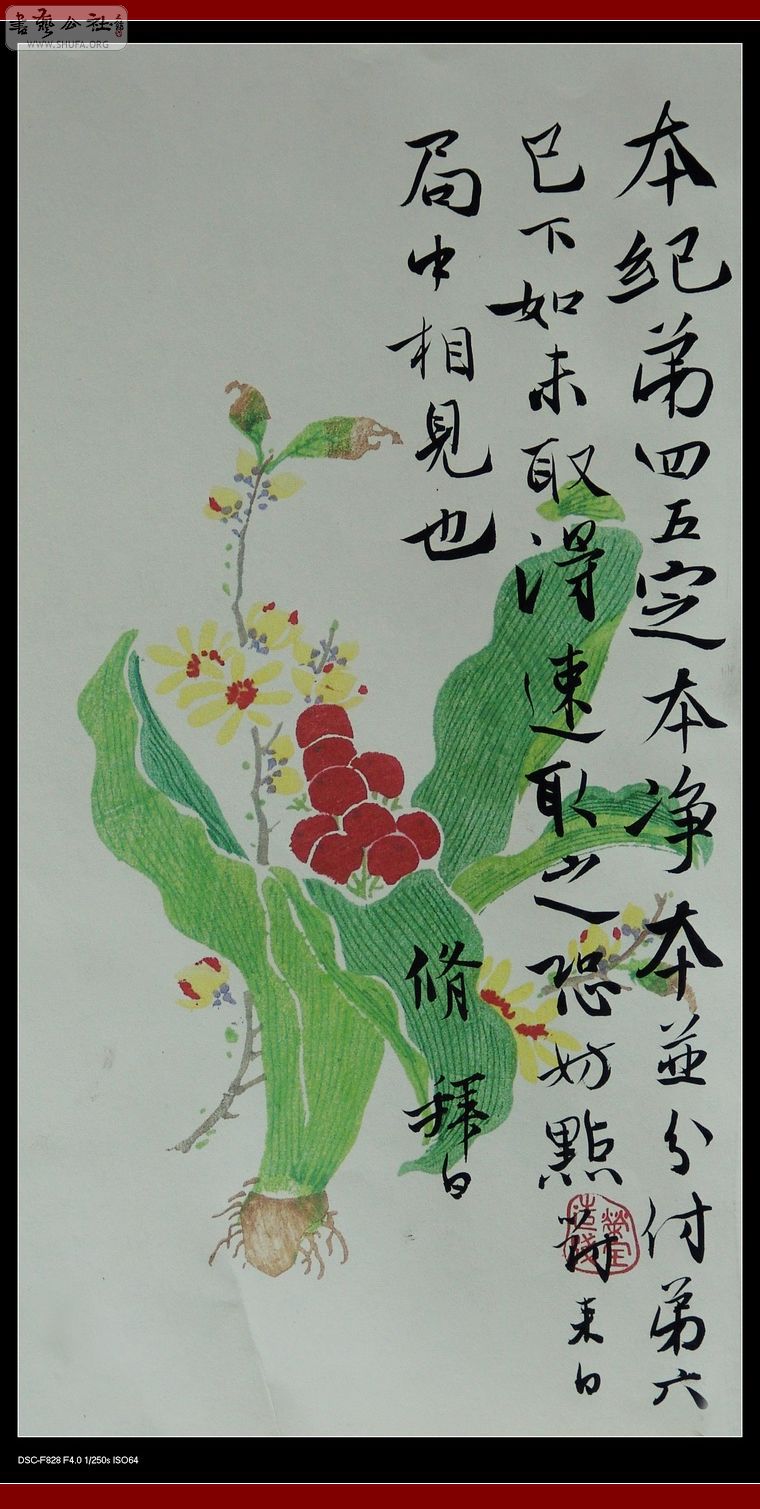 書藝公社
WWW.SHUFA.ORG
本紀第四五定本净本並分付第六
已下如未取得速取之恐妨點
来日
局中相見也
脩 拜白
DSC-F828 F4.0 1/250s ISO64